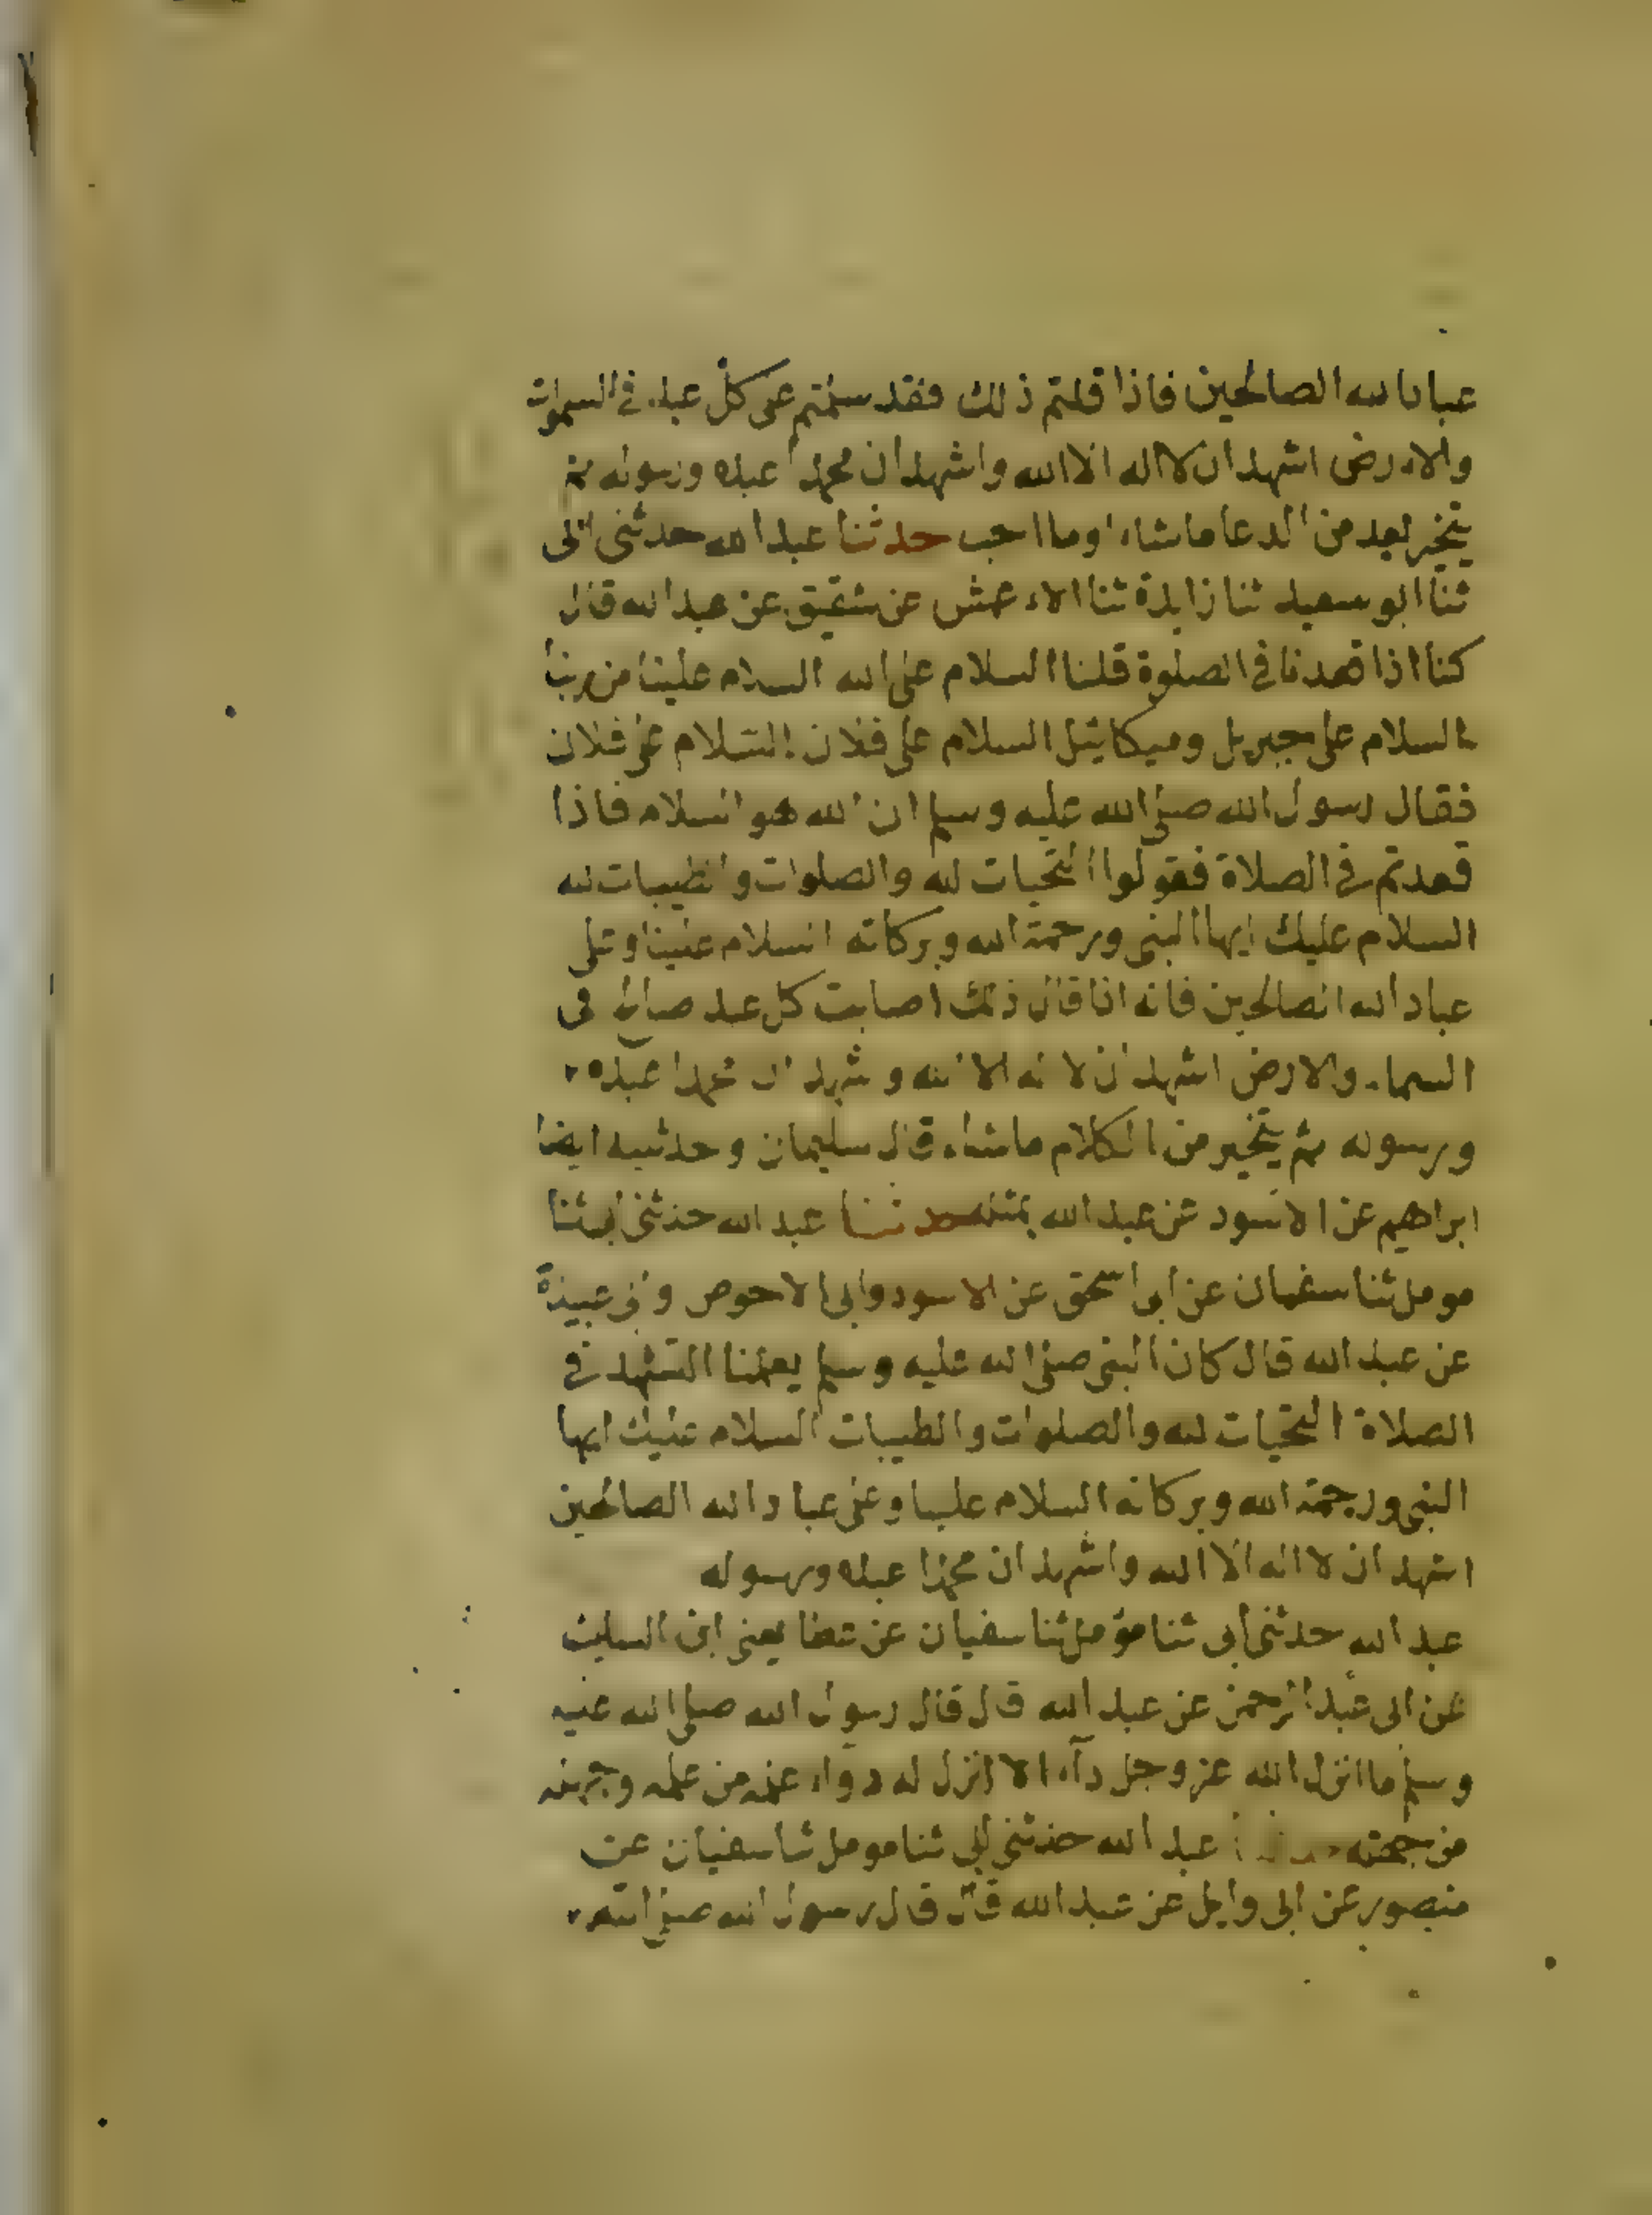 عباد الله الصالحين فاذا قلتم ذلك فقد سلمتم على كل عبد في السموات
والارض اشهد ان لا اله الا الله واشهد ان محمدا عبده ورسوله ثم
يتخير بعد من الدعا ما شاء او ما احب حدثنا عبد الله حدثنى ابى
ثنا ابو سعيد ثنا زايدة ثنا الاعمش عن شقيق عن عبد الله قال
كنا اذا قعدنا في الصلوة قلنا السلام على الله السلام علينا من ربنا
السلام على جبريل وميكائيل السلام على فلان السلام على فلان
فقال رسول الله صلى الله عليه وسلم ان الله هو السلام فاذا
قعدتم في الصلاة فقولوا التحيات لله والصلوات والطيبات لله
السلام عليك ايها النبى ورحمة الله وبركاته السلام علينا وعلى
عباد الله الصالحين فانه اذا قال ذلك اصابت كل عبد صالح فى
السماء والارض اشهد ان لا اله الا الله واشهد ان محمدا عبده
ورسوله ثم يتخير من الكلام ما شاء قال سليمان وحدثنيه ايضا
ابراهيم عن الاسود عن عبد الله بمثله حدثنا عبد الله حدثنى ابى ثنا
مومل ثنا سفيان عن ابى اسحق عن الاسود وابى الاحوص وابى عبيدة
عن عبد الله قال كان النبى صلى الله عليه وسلم يعلمنا التشهد في
الصلاة التحيات لله والصلوات والطيبات السلام عليك ايها
النبى ورحمة الله وبركاته السلام علينا وعلى عباد الله الصالحين
اشهد ان لا اله الا الله واشهد ان محمدا عبده ورسوله
عبد الله حدثنى ابى ثنا مؤمل ثنا سفيان عن عطا يعنى ابن السايب
عن ابى عبد الرحمن عن عبد الله قال قال رسول الله صلى الله عليه
وسلم ما انزل الله عز وجل دآء الا انزل له دواء علمه من علمه وجهله
من جهله حدثنا عبد الله حدثنى ابى ثنا مومل ثنا سفيان عن
منصور عن ابى وايل عن عبد الله قال قال رسول الله صلى الله